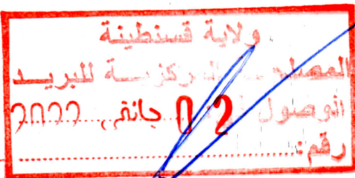 ولاية قسنطينة
المصلحة المركزية للبريد
الوصول 02 جانفي 2022
رقم: